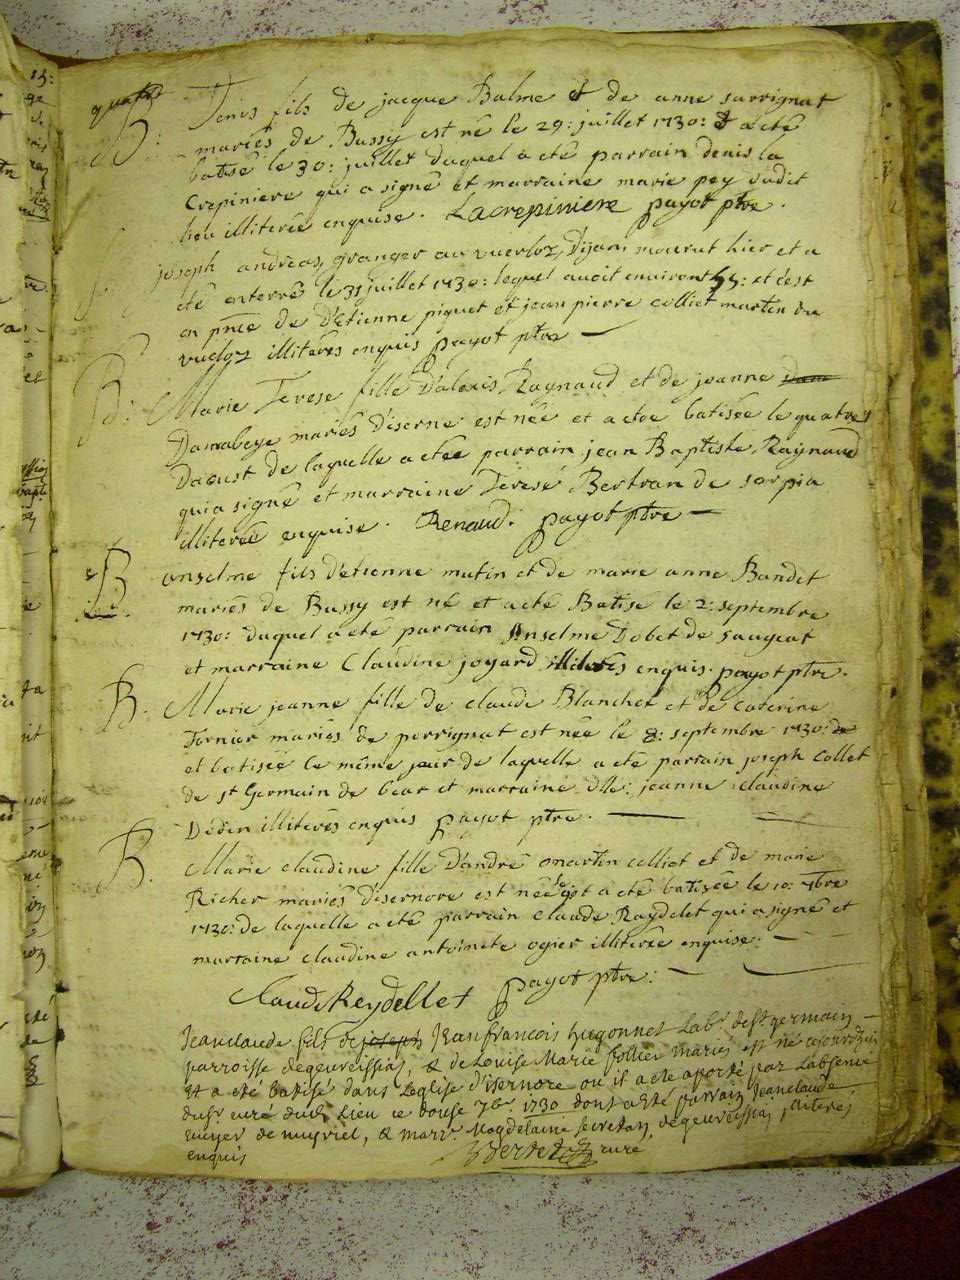 B. Denis fils de jacque Balme et de anne sarrignat
mariés de Bussy est né le 29: juillet 1730: et a été
batisé le 30: juillet duquel a été parrain denis la
Crepiniere qui a signé et marraine marie pey dudit
lieu illiterée enquise. Lacrepiniere payot ptre.
joseph andreas, granger au vuerloz, Dijan mourut hier et a
été enterré le 31 juillet 1730: lequel avoit environt 55: et c'est
en pnce de D'etienne piquet et jean pierre colliet martin du
vueloz illiterés enquis payot ptre
B: Marie Terese fille D'alexis Raynaud et de jeanne
Damabeye mariés D'iserne est née et a etoe batisée le quatre
Daoust de laquelle a etée parrain jean Baptiste Raynaud
qui a signé et marraine Terese Bertran de sorpia
illiterée enquise. Renaud. payot ptre
B anselme fils D'etienne mutin et de marie anne Bandet
mariés de Bussy est né et a été Batisé le 2: septembre
1730: duquel a été parrain Anselme Dobet de saugeat
et marraine Claudine joyard illiterés enquis. payot ptre.
B. Marie jeanne fille de claude Blanchet et de Caterine
Fornier mariés de perrignat est née le 8: septembre 1730: de
et batisée le même jour de laquelle a été parrain joseph Collet
de st Germain de bear et marraine dlle: jeanne claudine
Déden illiterés enquis payot ptre.
B. Marie claudine fille D'andré martin colliet et de marie
Richer mariés D'isernore est née et a été batisée le 10: 7bre
1730: de laquelle a été parrain claude Raydelet qui a signé et
martaine claudine antoinete ogier illiterée enquise:
Claude Reydellet payot ptre:
Jeanclaude fils de joseph Jeanfrancois hugonnet Labr. de st germain
parroisse degeureissiat, & de Louise Marie follier mariés est né
et a été batisé dans Leglise d'isernore ou il a été aporté par Labsence
du sr curé dud. Lieu ce douse 7br. 1730 dont a été parrain Jeanclaude
de & marr. Magdelaine secretan degeureissiat
enquis curé